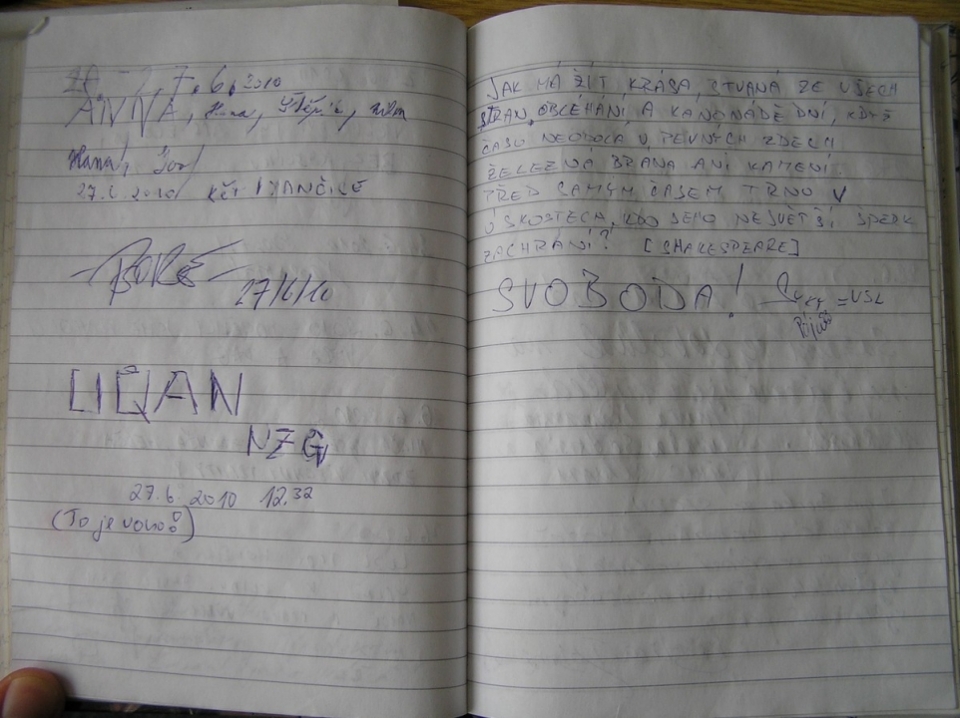 7.6.2010
ANNA, Hana, Štěpán,
Hana!
27.6.2010
BORE
27/6/10
LIQAN
NZG
27.6. 2010 12.32
(To je vono!)
JAK MÁ ŽÍT KRÁSA, ŠTVANÁ ZE VŠECH
STRAN, OBLÉHÁNÍ A KANONÁDĚ DNÍ, KDYŽ
ČASU NEODOLÁ V PEVNÝCH ZDECH
ŽELEZNÁ BRÁNA ANI KAMENÍ
PŘED SAMÝM ČASEM TRNU V
ÚSKOSTECH, KDO JEHO NEJVĚTŠÍ ŠPERK
ZACHRÁNÍ? [SHAKESPEARE]
SVOBODA! = VSL